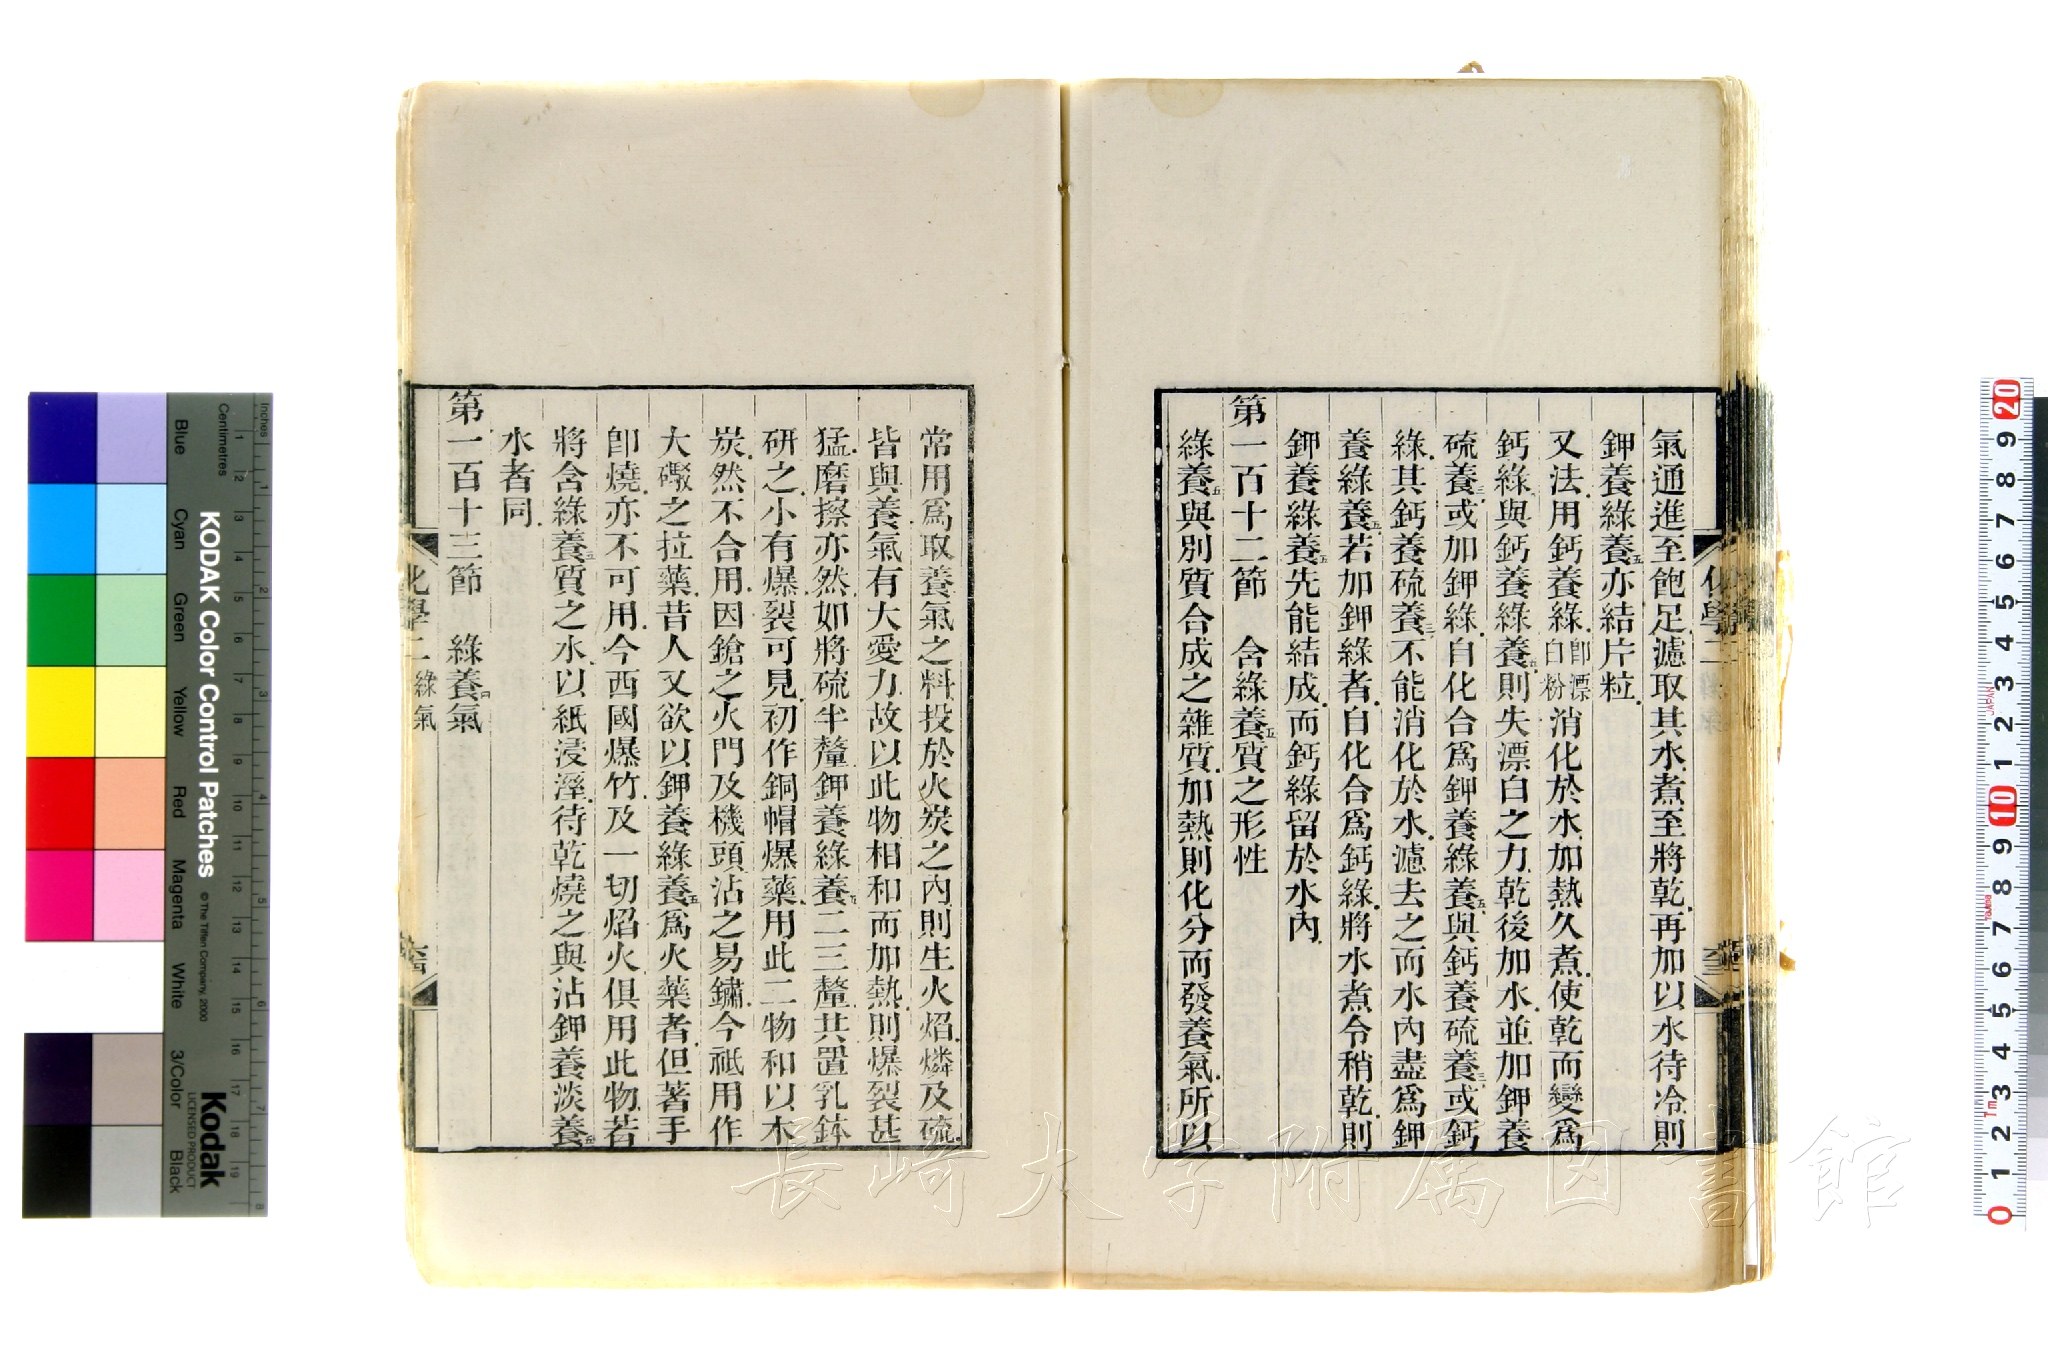 氣通進至飽足濾取其水煮至將乾再加以水待冷則
鉀養綠養五亦結片粒
又法用鈣養綠卽漂白粉消化於水加熱久煮使乾而變爲
鈣綠與鈣養綠養五則失漂白之力乾後加水並加鉀養
硫養三或加鉀綠自化合爲鉀養綠養五與鈣養硫養三或鈣
綠其鈣養硫養三不能消化於水濾去之而水內盡爲鉀
養綠養五若加鉀綠者自化合爲鈣綠將水煮令稍乾則
鉀養綠養五先能結成而鈣綠留於水內
第一百十二節 含綠養五質之形性
綠養五與別質合成之雜質加熱則化分而發養氣所以
常用爲取養氣之料投於火炭之內則生火焰燐及硫
皆與養氣有大愛力故以此物相和而加熱則爆裂甚
猛磨擦亦然如將硫半釐鉀養綠養五二三釐共置乳鉢
研之小有爆裂可見初作銅帽爆藥用此二物和以木
炭然不合用因鎗之火門及機頭沾之易鏽今祗用作
大礮之拉藥昔人又欲以鉀養綠養五爲火藥者但著手
卽燒亦不可用今西國爆竹及一切焰火俱用此物若
將含綠養五質之水以紙浸溼待乾燒之與沾鉀養淡養五
水者同
第一百十三節 綠養四氣
化學二 綠氣
KODAK Color Control Patches
© The Tiffen Company, 2000
Kodak
LICENSED PRODUCT
Inches
Centimetres
Blue
Cyan
Green
Yellow
Red
Magenta
White
3/Color
Black
長崎大学附属図書館